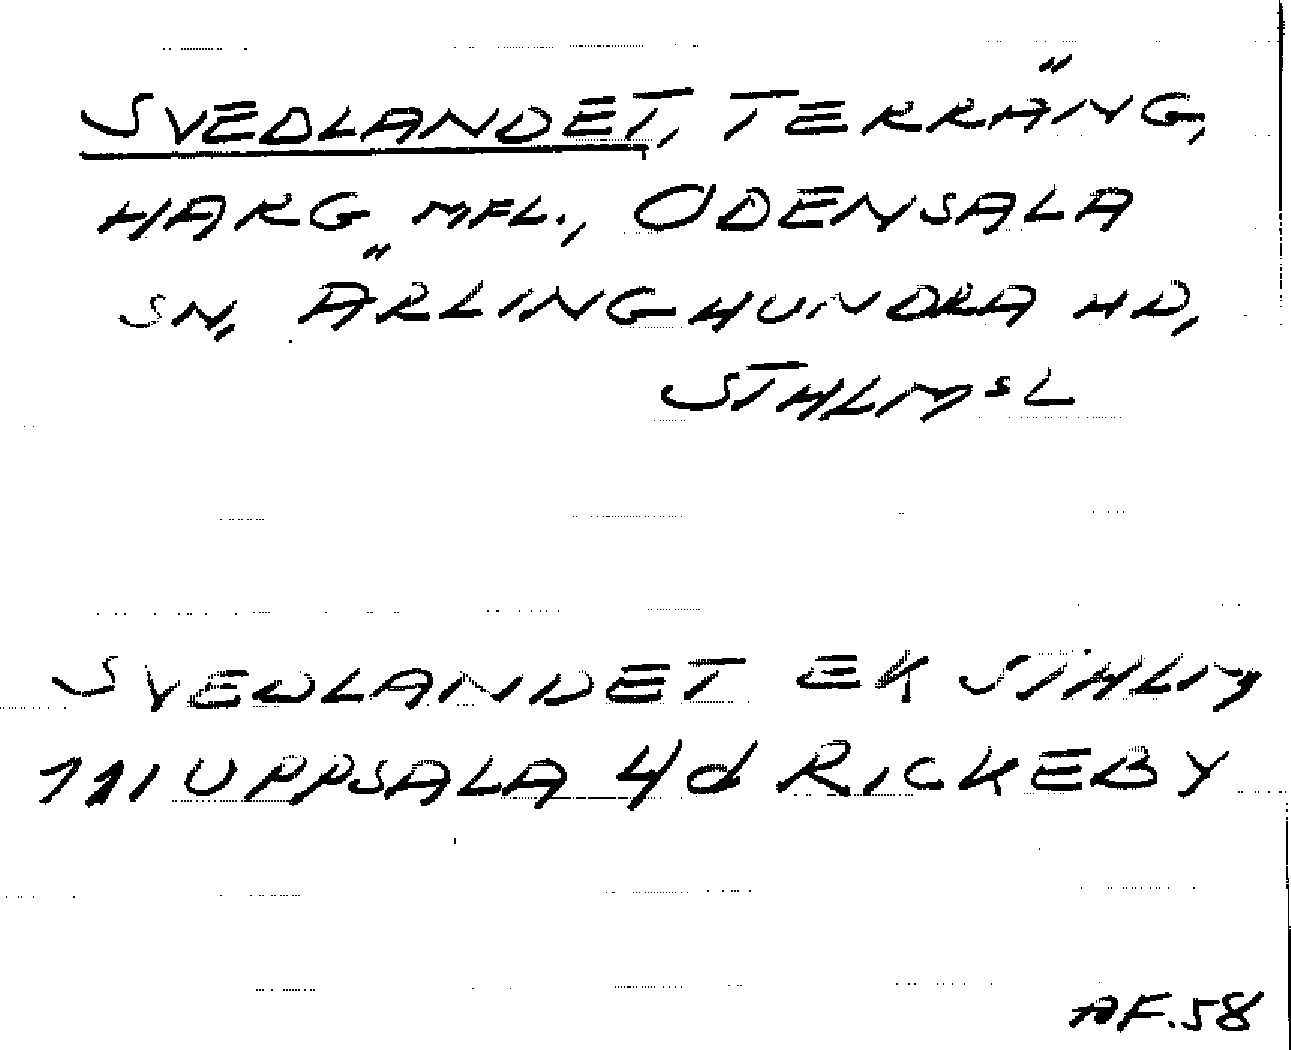 SVEDLANDET, TERRÄNG,
HARG MFL., ODENSALA
SN, ÄRLINGHUNDRA HD,
STHLMS L
SVEDLANDET EK STHLM
111 UPPSALA 4d RICKEBY
AF.58